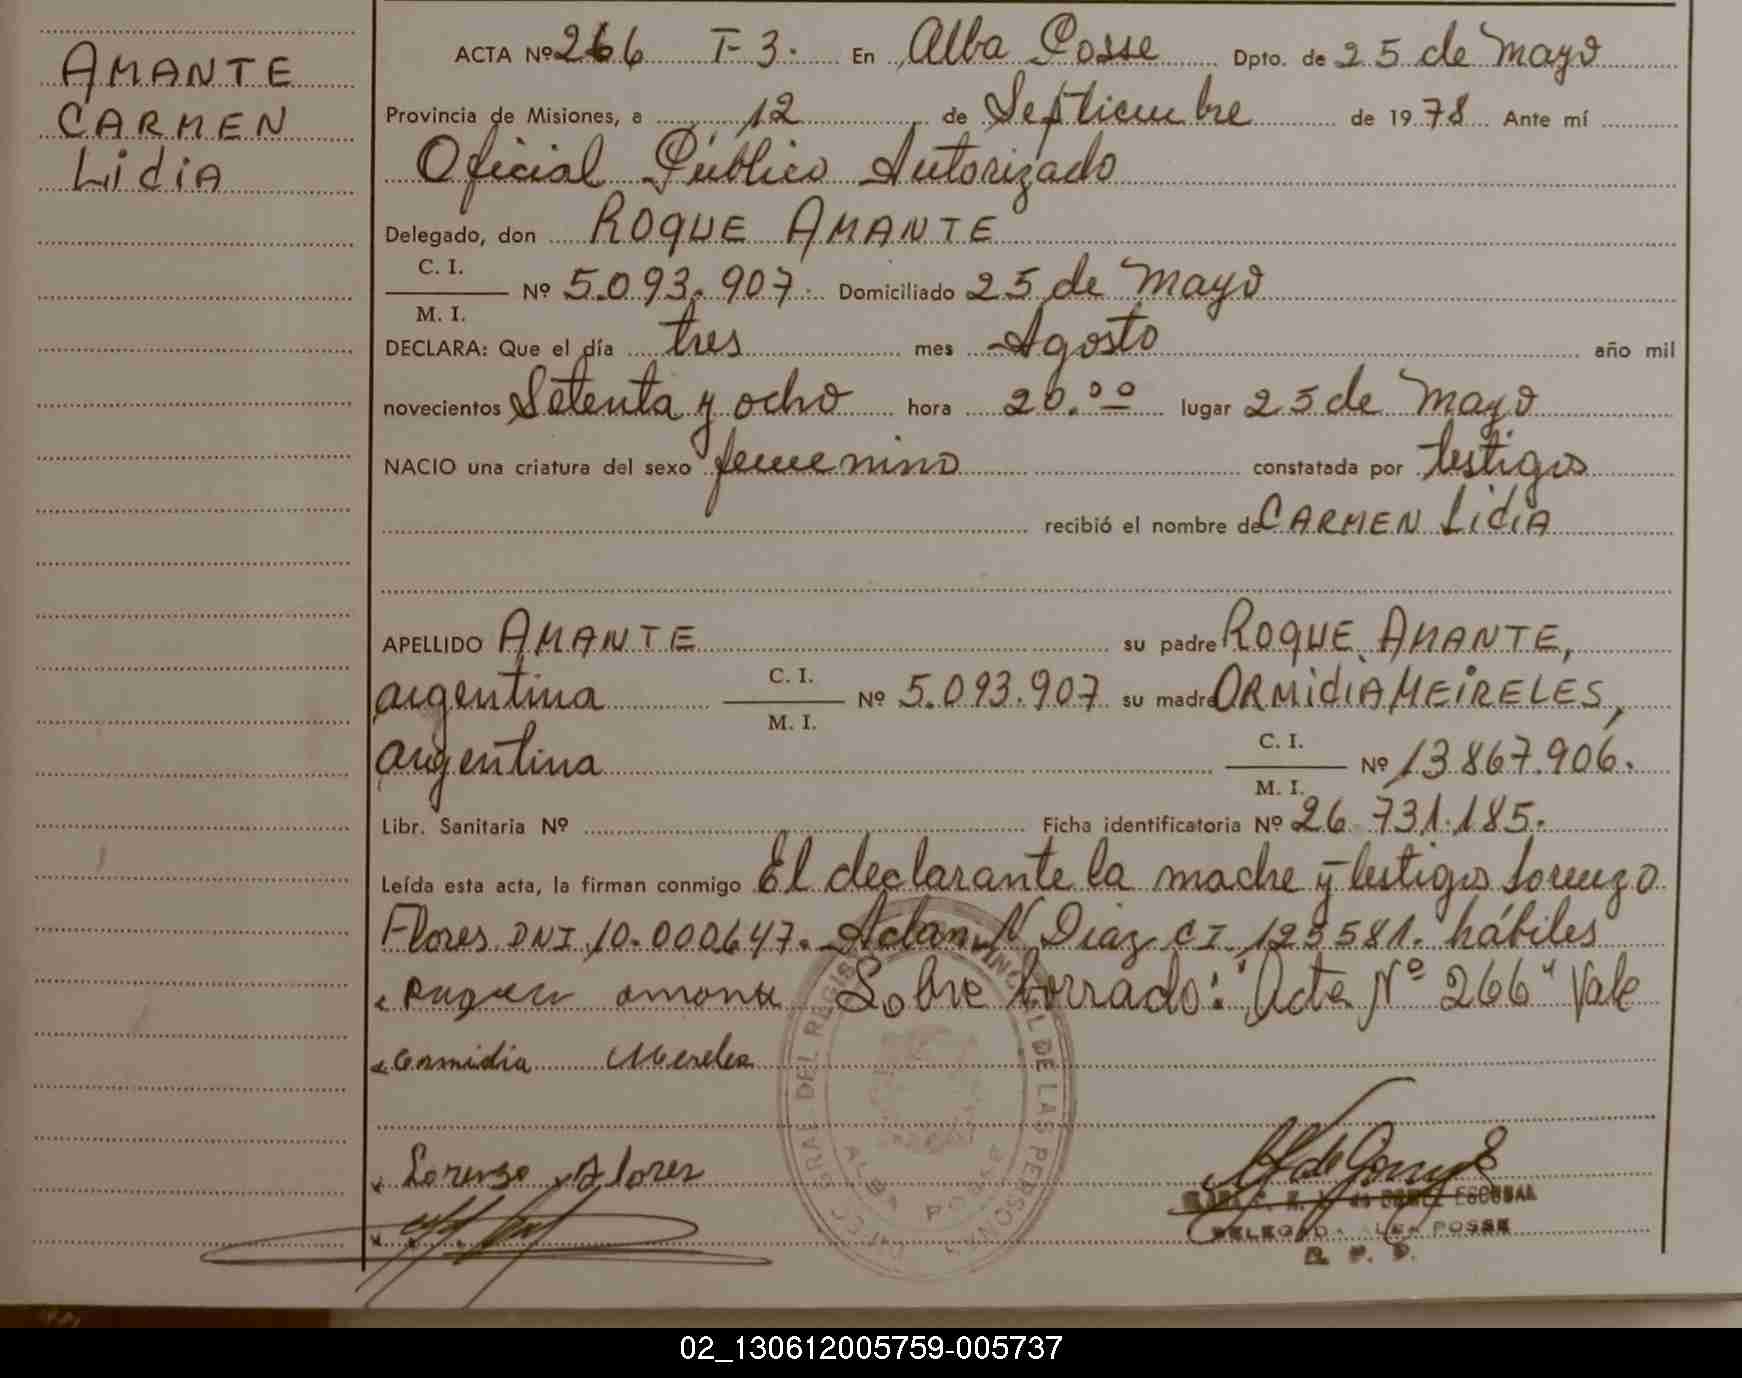 AMANTE
CARMEN
LidiA
ACTA Nº 266 T-3. En Alba Posse Dpto. de 25 de Mayo
Provincia de Misiones, a 12 de Septiembre de 1978 Ante mí
Oficial Público Autorizado
Delegado, don ROQUE AMANTE
C. I.
M. I.
Nº 5.093.907. Domiciliado 25 de Mayo
DECLARA: Que el día tres mes Agosto año mil
novecientos Setenta y ocho hora 20.ºº lugar 25 de Mayo
NACIO una criatura del sexo femenino constatada por testigos
recibió el nombre de CARMEN LidiA
APELLIDO AMANTE su padre ROQUE AMANTE,
argentina C. I. M. I. Nº 5.093.907 su madre ORMIDIA MEIRELES,
argentina C. I. M. I. Nº 13.867.906.
Libr. Sanitaria Nº Ficha identificatoria Nº 26.731.185.
Leída esta acta, la firman conmigo El declarante la madre y testigos Lorenzo
Flores DNI 10.000.647. Adan N Diaz CI 125581. hábiles
amante Sobre borrado: "Acta Nº 266" Vale
Ormidia Mereles
Lorenzo Flores
GRAL DEL REGISTRO PROVINCIAL DE LAS PERSONAS
ALBA POSSE
ESCOBAR
POSSE
R. P. P.
02_130612005759-005737